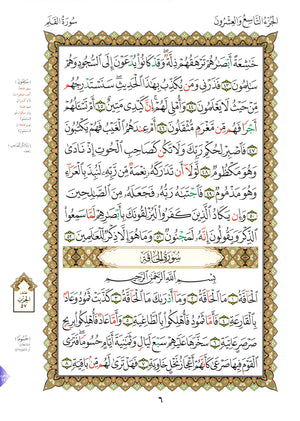 الجزء التاسع والعشرون
سورة القلم
خَٰشِعَةً أَبْصَٰرُهُمْ تَرْهَقُهُمْ ذِلَّةٌ وَقَدْ كَانُوا۟ يُدْعَوْنَ إِلَى ٱلسُّجُودِ وَهُمْ
سَٰلِمُونَ ٤٣ فَذَرْنِى وَمَن يُكَذِّبُ بِهَٰذَا ٱلْحَدِيثِ سَنَسْتَدْرِجُهُم
مِّنْ حَيْثُ لَا يَعْلَمُونَ ٤٤ وَأُمْلِى لَهُمْ إِنَّ كَيْدِى مَتِينٌ ٤٥ أَمْ تَسْـَٔلُهُمْ
أَجْرًا فَهُم مِّن مَّغْرَمٍ مُّثْقَلُونَ ٤٦ أَمْ عِندَهُمُ ٱلْغَيْبُ فَهُمْ يَكْتُبُونَ
٤٧ فَٱصْبِرْ لِحُكْمِ رَبِّكَ وَلَا تَكُن كَصَاحِبِ ٱلْحُوتِ إِذْ نَادَىٰ
وَهُوَ مَكْظُومٌ ٤٨ لَّوْلَآ أَن تَدَٰرَكَهُۥ نِعْمَةٌ مِّن رَّبِّهِۦ لَنُبِذَ بِٱلْعَرَآءِ
وَهُوَ مَذْمُومٌ ٤٩ فَٱجْتَبَٰهُ رَبُّهُۥ فَجَعَلَهُۥ مِنَ ٱلصَّٰلِحِينَ
٥٠ وَإِن يَكَادُ ٱلَّذِينَ كَفَرُوا۟ لَيُزْلِقُونَكَ بِأَبْصَٰرِهِمْ لَمَّا سَمِعُوا۟
ٱلذِّكْرَ وَيَقُولُونَ إِنَّهُۥ لَمَجْنُونٌ ٥١ وَمَا هُوَ إِلَّا ذِكْرٌ لِّلْعَٰلَمِينَ ٥٢
سورة الحاقة
بِسْمِ ٱللَّهِ ٱلرَّحْمَٰنِ ٱلرَّحِيمِ
ٱلْحَآقَّةُ ١ مَا ٱلْحَآقَّةُ ٢ وَمَآ أَدْرَىٰكَ مَا ٱلْحَآقَّةُ ٣ كَذَّبَتْ ثَمُودُ وَعَادٌۢ
بِٱلْقَارِعَةِ ٤ فَأَمَّا ثَمُودُ فَأُهْلِكُوا۟ بِٱلطَّاغِيَةِ ٥ وَأَمَّا عَادٌ فَأُهْلِكُوا۟ بِرِيحٍ
صَرْصَرٍ عَاتِيَةٍ ٦ سَخَّرَهَا عَلَيْهِمْ سَبْعَ لَيَالٍ وَثَمَٰنِيَةَ أَيَّامٍ حُسُومًا فَتَرَى
ٱلْقَوْمَ فِيهَا صَرْعَىٰ كَأَنَّهُمْ أَعْجَازُ نَخْلٍ خَاوِيَةٍ ٧ فَهَلْ تَرَىٰ لَهُم مِّنۢ بَاقِيَةٍ ٨
الحزب
٥٧
٦